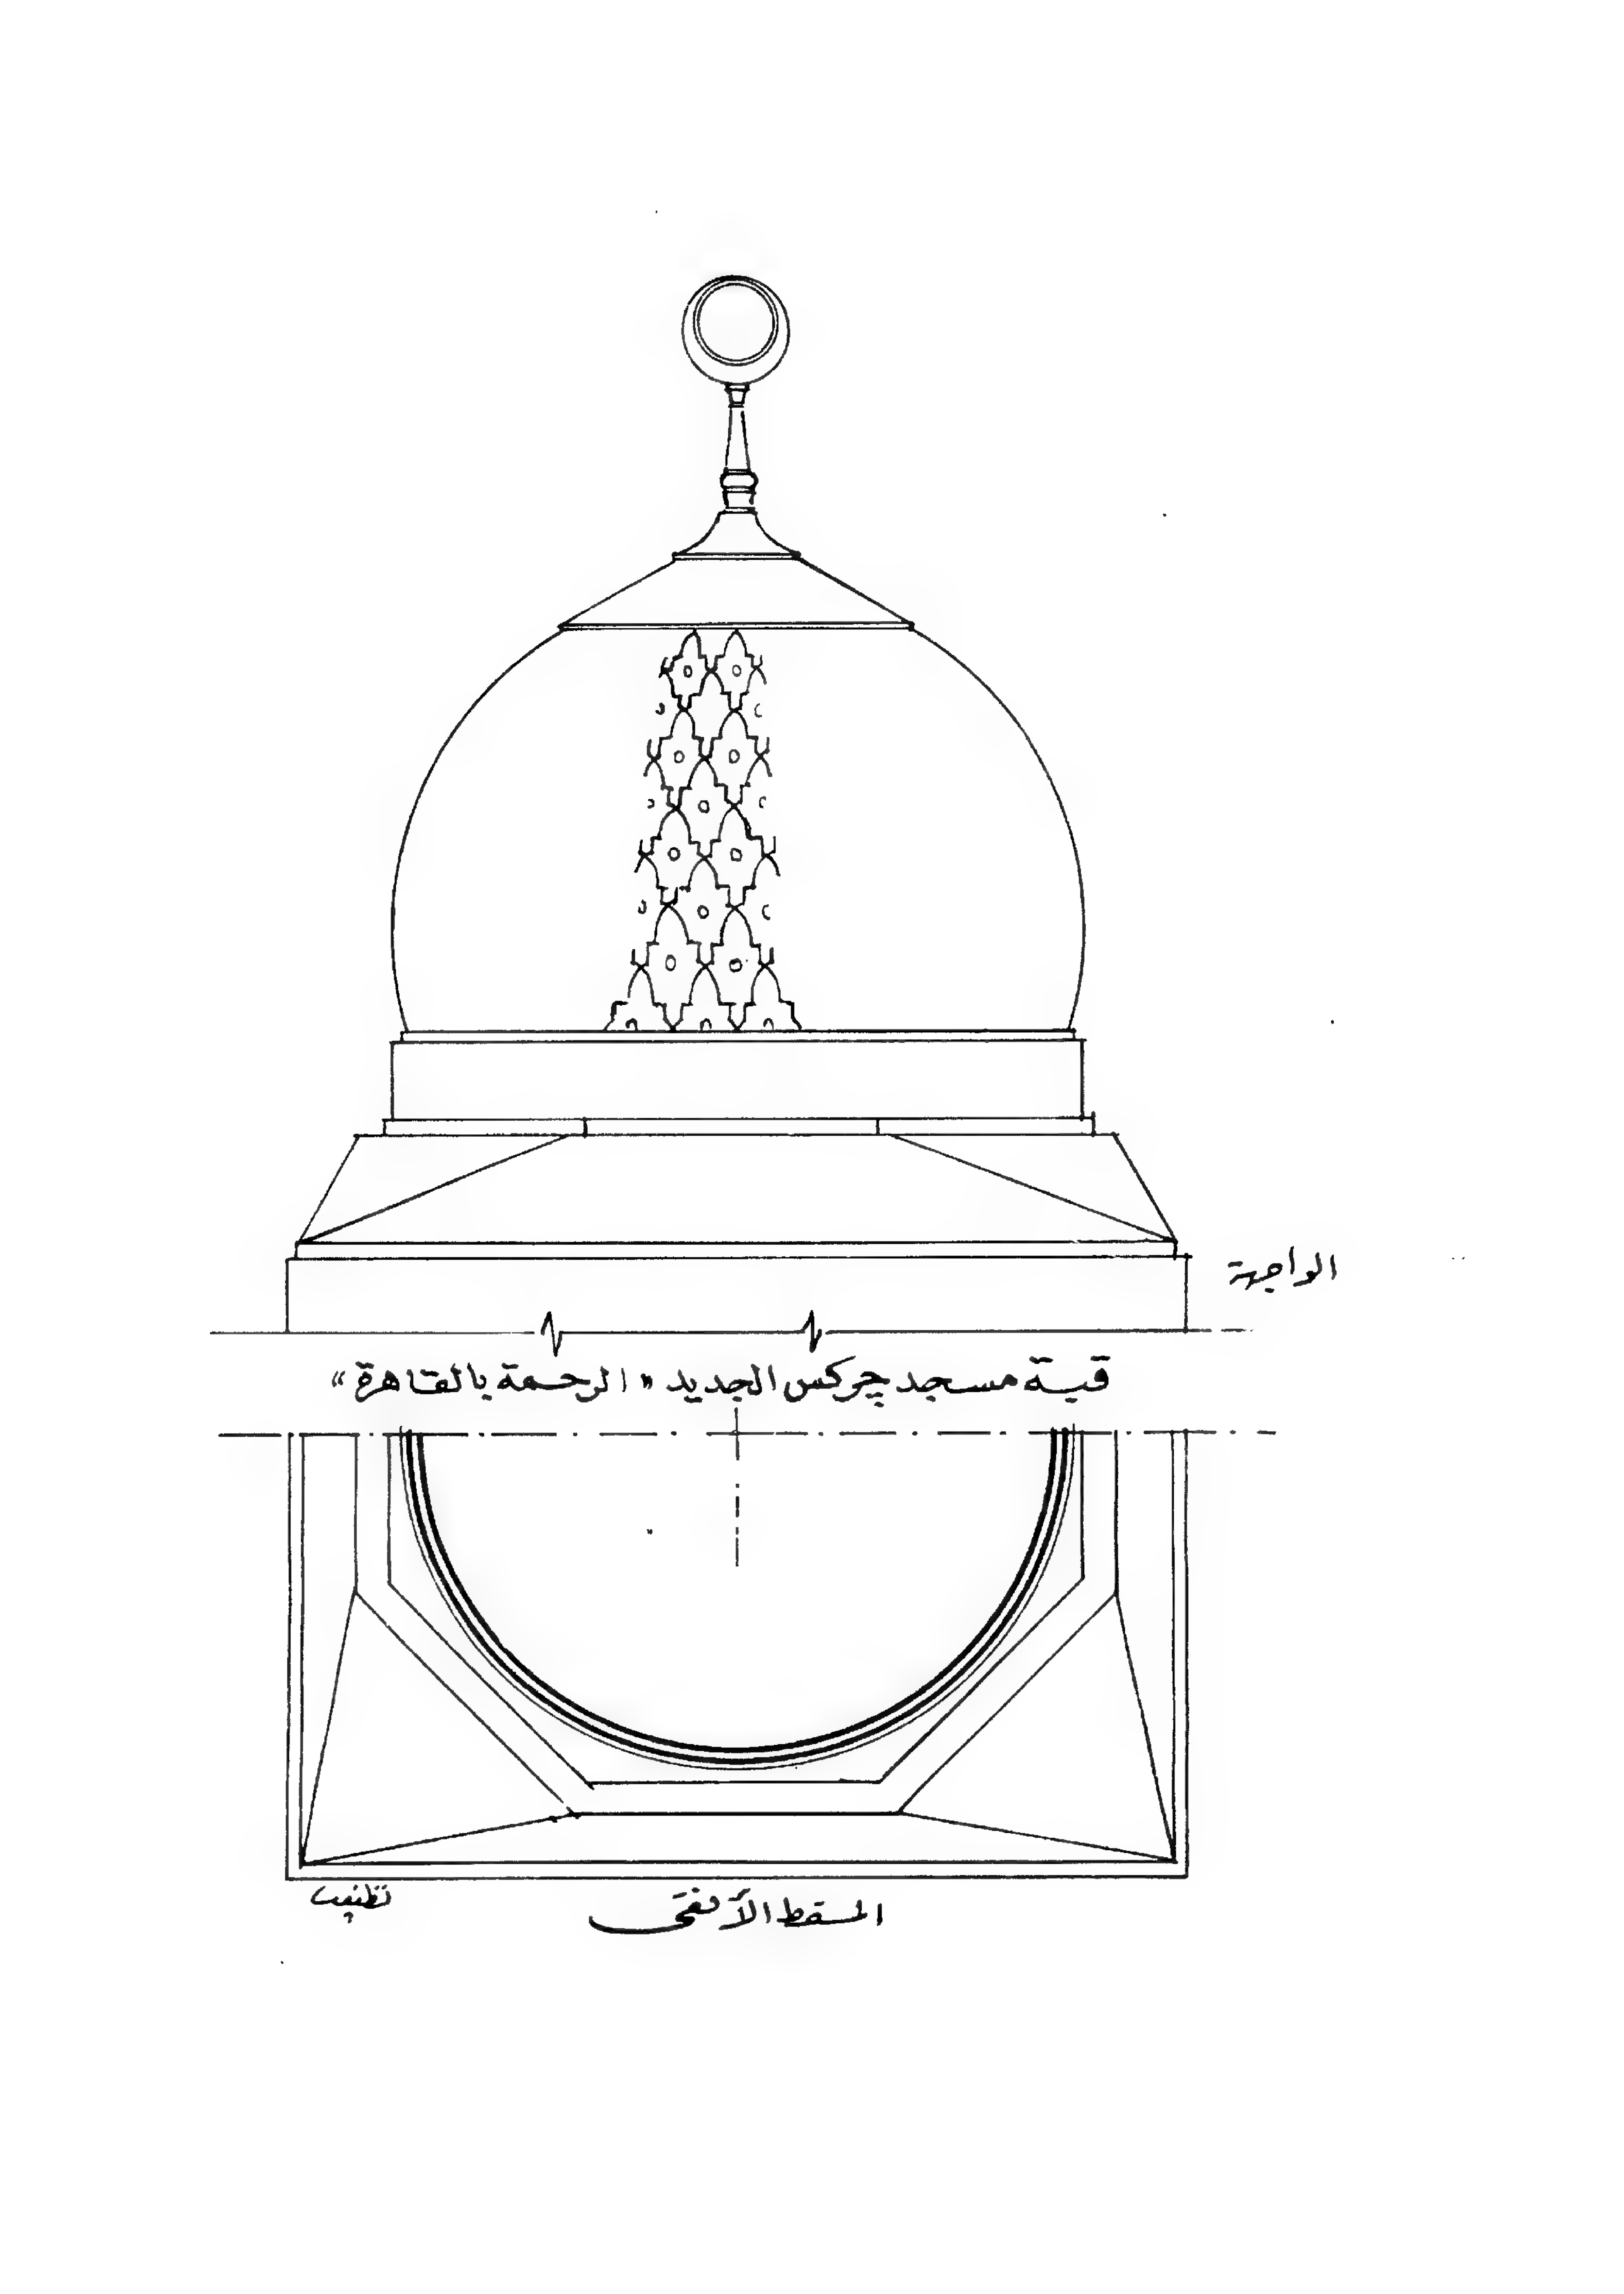 الواجهة
قبة مسجد چركس الجديد "الرحمة بالقاهرة"
المسقط الأفقى